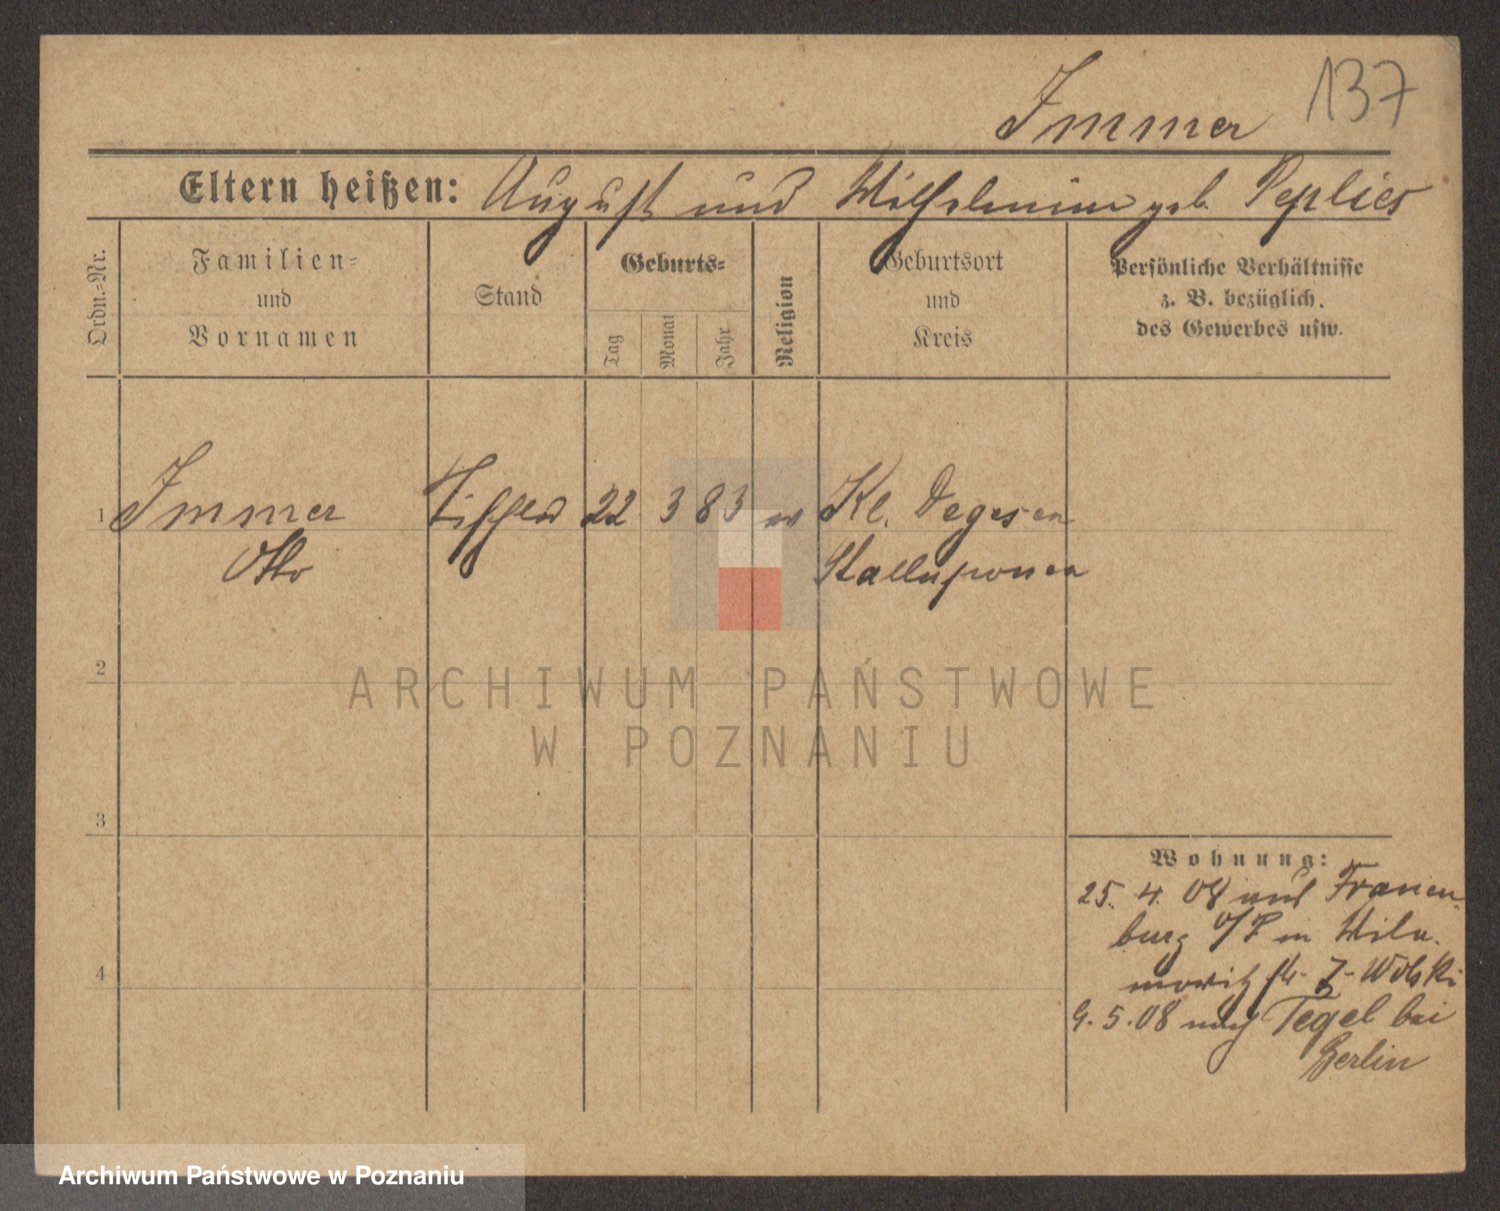 137
Immer
Eltern heißen: August und Wilhelmine geb. Peplies
Ordn.-Nr.
Familien-
und
Vornamen
Stand
Geburts-
Tag
Monat
Jahr
Religion
Geburtsort
und
Kreis
Persönliche Verhältnisse
z. B. bezüglich.
des Gewerbes usw.
1 Immer Tischler 22 3 83 ev Kl. Degesen
Otto Stallupönen
2
3
4
Wohnung:
25. 4. 08 aus Frauen
burg O/P in
b. Wolski
9. 5. 08 nach Tegel bei
Berlin
ARCHIWUM PAŃSTWOWE
W POZNANIU
Archiwum Państwowe w Poznaniu